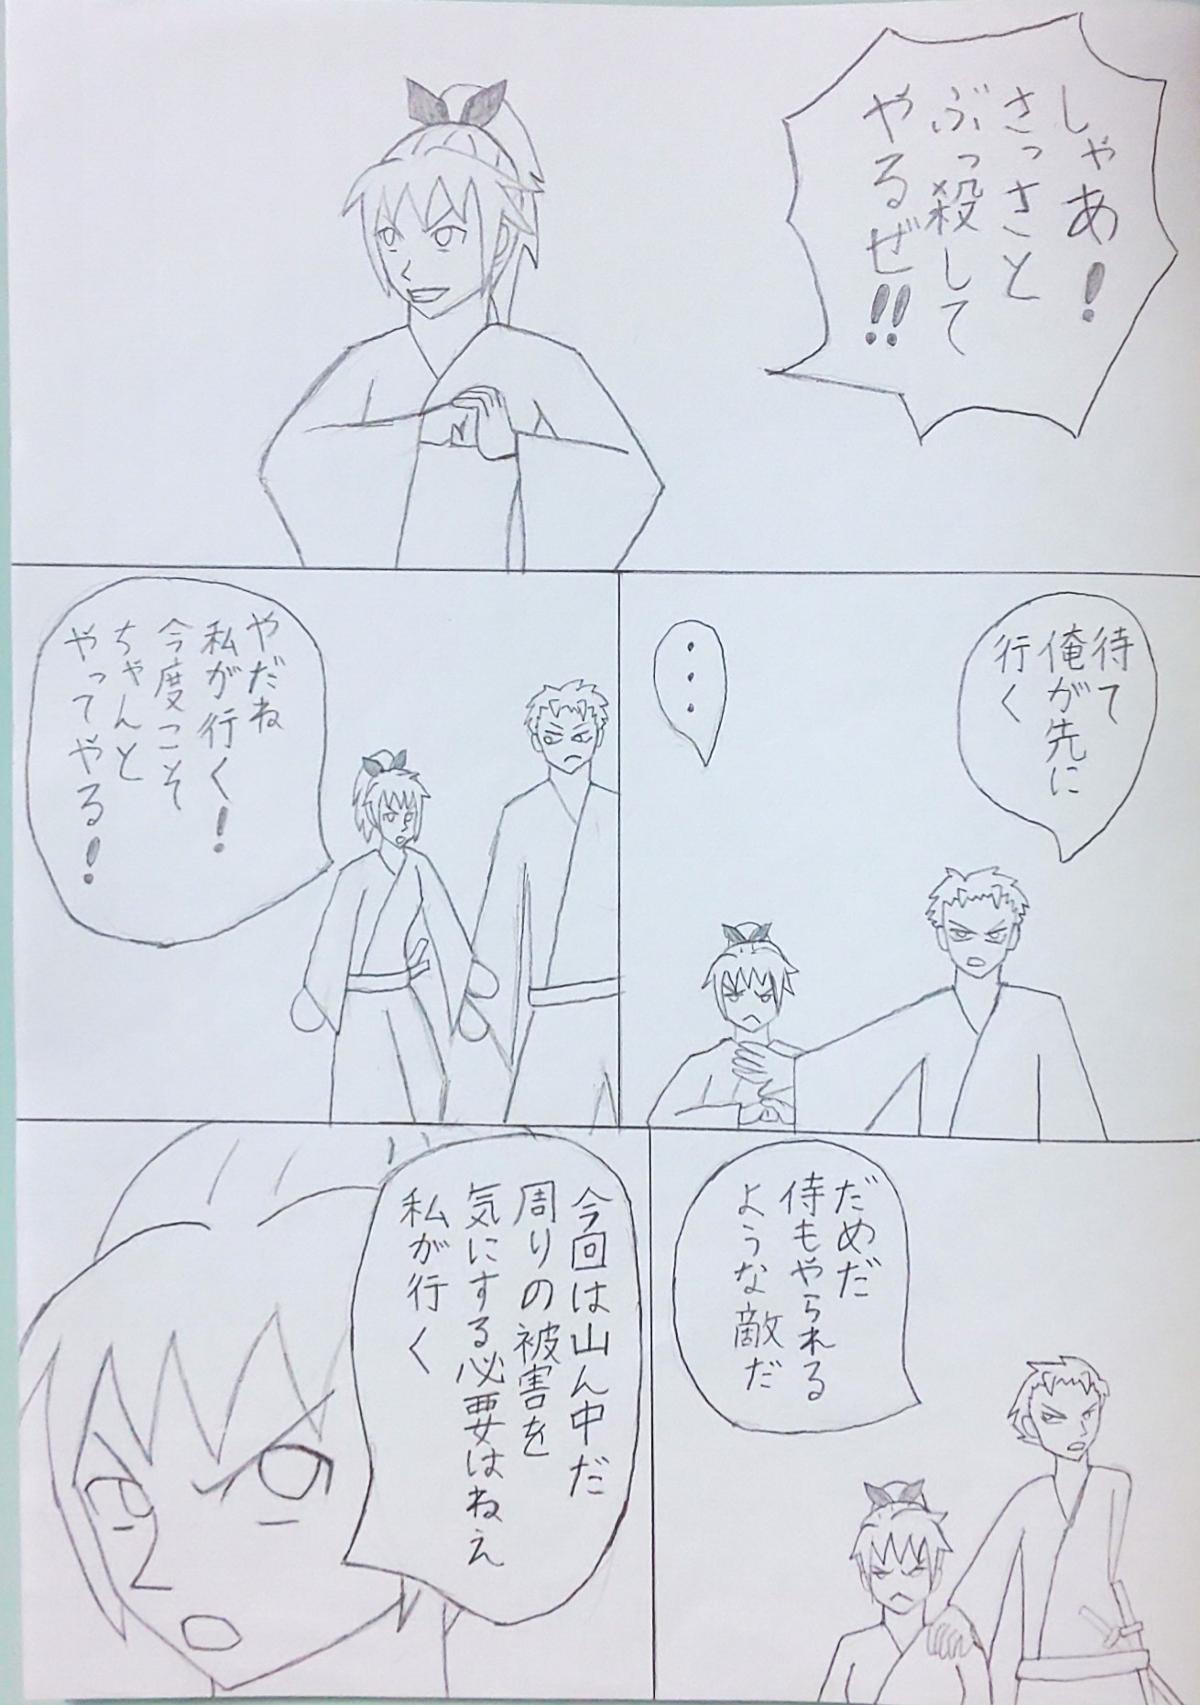 しゃあ！
さっさと
ぶっ殺して
やるぜ!!
待て
俺が先に
行く
・・・
やだね
私が行く！
今度こそ
ちゃんと
やってやる！
だめだ
侍もやられる
ような敵だ
今回は山ん中だ
周りの被害を
気にする必要はねえ
私が行く